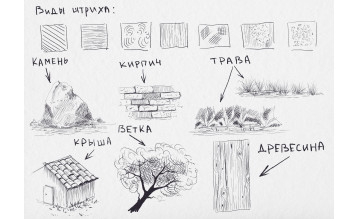 Виды штриха:
КАМЕНЬ
КИРПИЧ
ТРАВА
КРЫША
ВЕТКА
ДРЕВЕСИНА